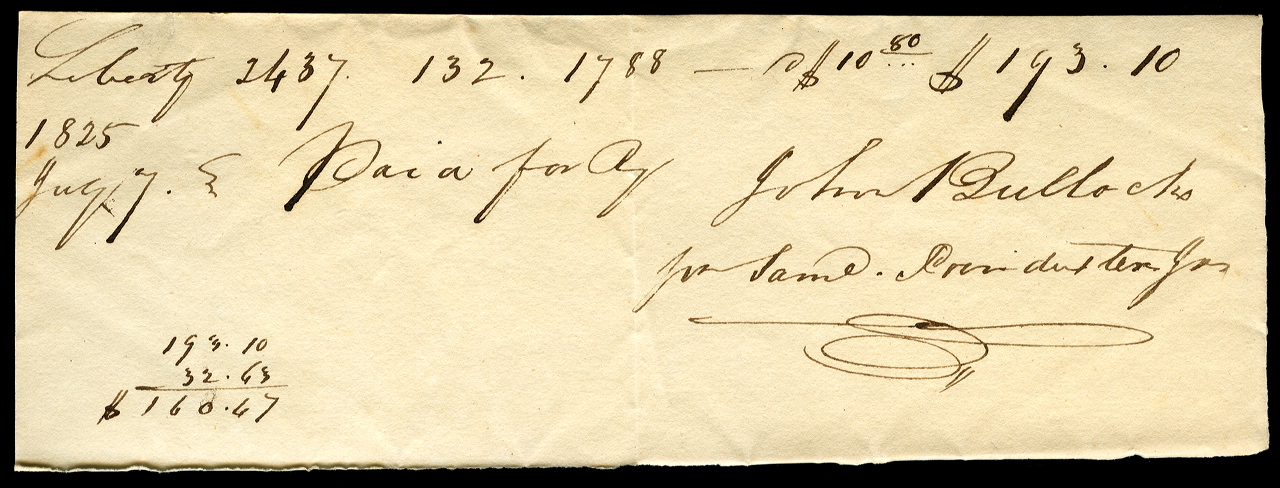 Liberty 2437. 132. 1788 — @ $10 80 $193.10
1825
July 7. Paid for By John Bullock
for Saml. Poindexter Jnr
193.10
32.63
$ 160.47